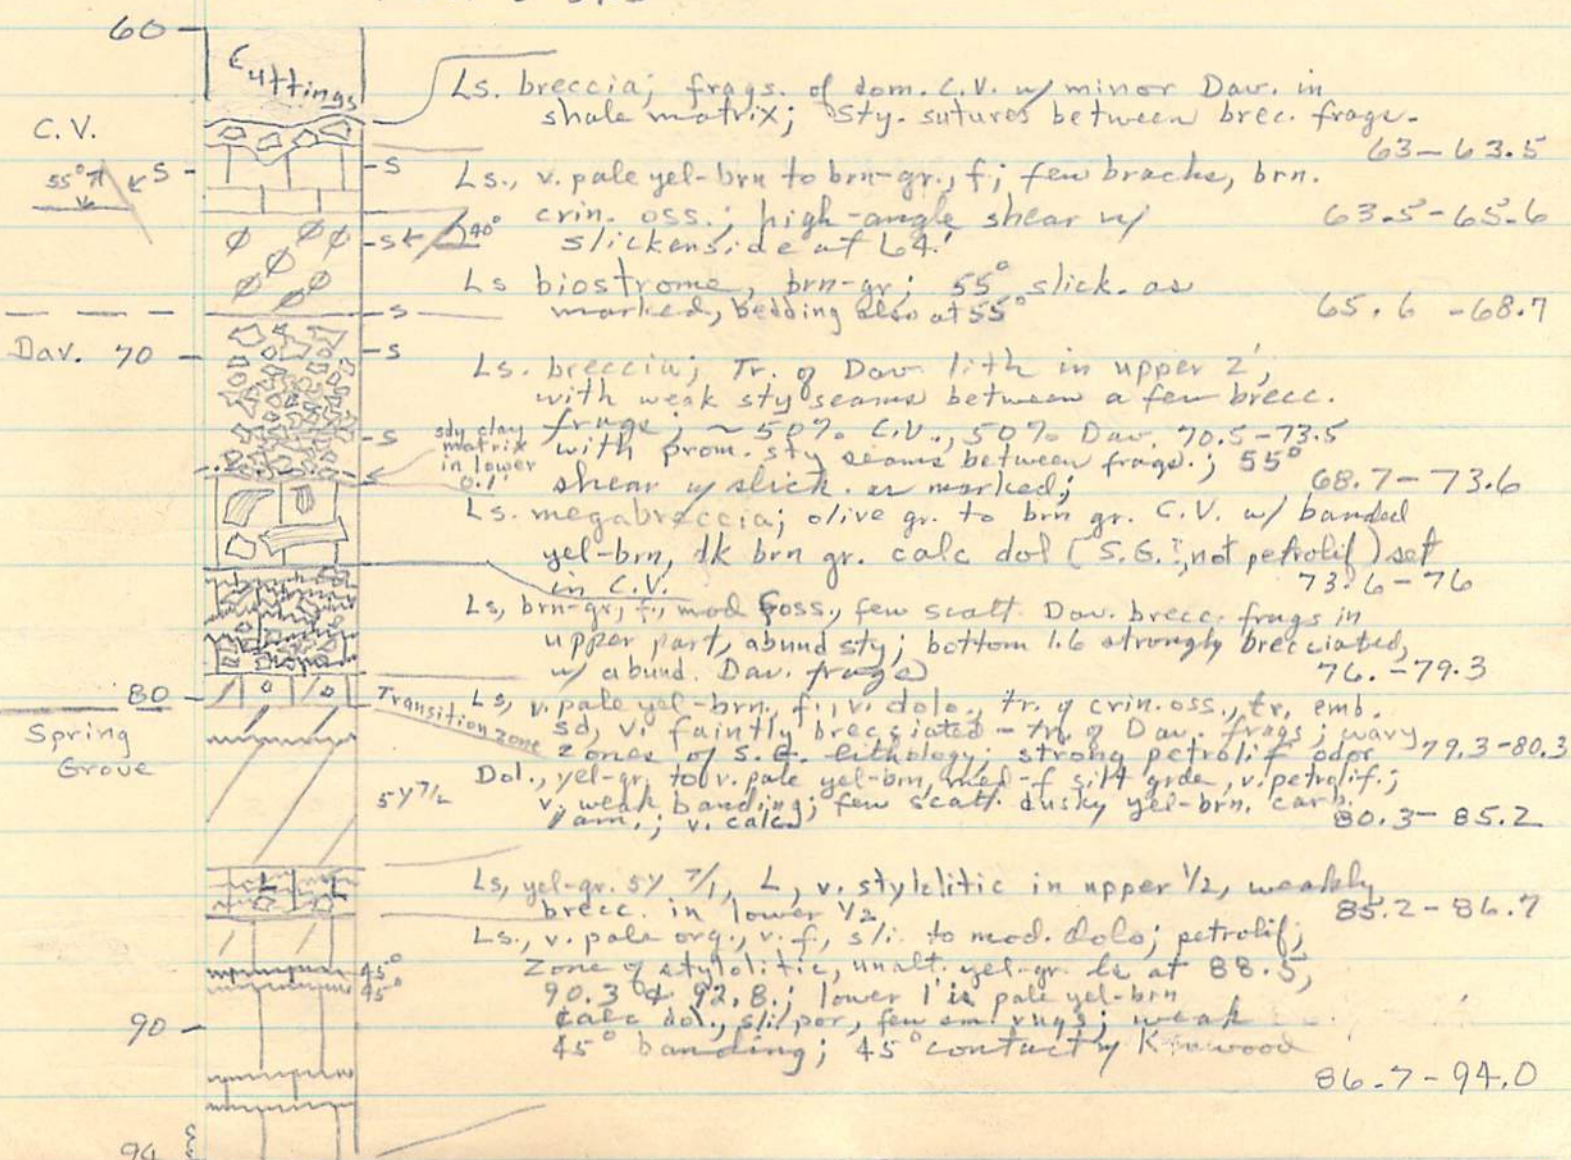 60
Cuttings
Ls. breccia; frags. of dom. C.V. w/ minor Dav. in
shale matrix; Sty. sutures between brec. frags.
63-63.5
C.V.
55° S
S
Ls., v. pale yel-brn to brn-gr., f; few brachs, brn.
crin. oss.; high-angle shear w/
63.5-65.6
slickenside at 64.'
S 40°
Ls biostrome, brn-gr; 55° slick. as
marked, bedding also at 55°
65.6 - 68.7
S
Dav. 70
S
Ls. breccia; Tr. of Dav lith in upper 2';
with weak sty seams between a few brecc.
frags; ~50% C.V., 50% Dav. 70.5-73.5
S
sdy clay
matrix
in lower
0.1'
with prom. sty seams between frags.; 55°
shear w/ slick. as marked;
68.7-73.6
Ls. megabreccia; olive gr. to brn gr. C.V. w/ banded
yel-brn, dk brn gr. calc dol (S.G.?, not petrolif) set
in C.V.
73.6-76
Ls, brn-gr, f., mod foss., few scatt Dav. brecc. frags in
upper part, abund sty; bottom 1.6 strongly brecciated,
w/ abund. Dav. frags
76.-79.3
80
Transition zone
Ls, v. pale yel-brn., f., v. dolo., tr. of crin. oss., tr. emb.
sd, v. faintly brecciated - tr. of Dav. frags; wavy
zones of S.G. lithology; strong petrolif odor
79.3-80.3
Spring
Grove
Dol., yel-gr. to v. pale yel-brn, med-f silt grde, v. petrolif.;
5Y 7/2
v. weak banding; few scatt. dusky yel-brn. carb.
lam.; v. calc
80.3-85.2
Ls, yel-gr. 5Y 7/1, L, v. stylolitic in upper 1/2, weakly
brecc. in lower 1/2
85.2-86.7
Ls., v. pale org., v.f., sli. to mod. dolo; petrolif;
zone of stylolitic, unalt. yel-gr. ls at 88.5,
45°
45°
90.3 & 92.8.; lower 1' is pale yel-brn
calc dol., sli por, few sm. vugs; weak
90
45° banding; 45° contact w/ Kenwood
86.7-94.0
94